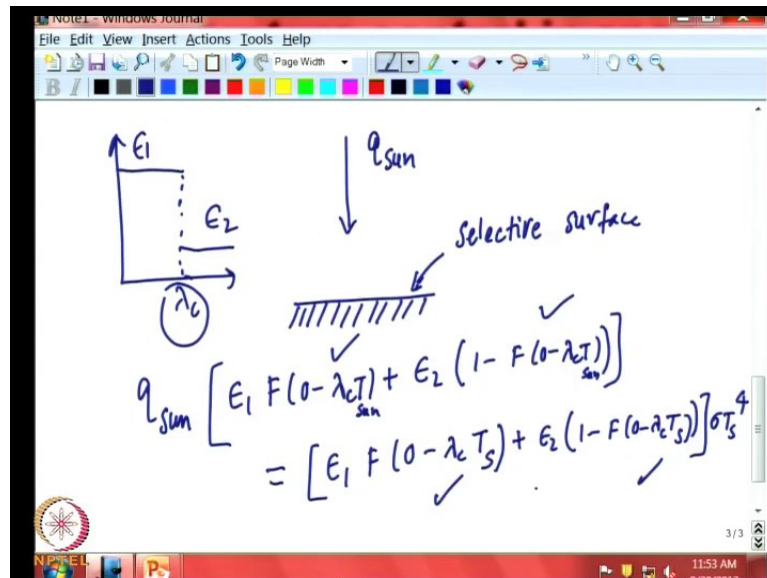 Note1 - Windows Journal
File Edit View Insert Actions Tools Help
Page Width
B I
ϵ1
ϵ2
λc
q sun
selective surface
q sun [ϵ1 F(0-λcT sun) + ϵ2 (1-F(0-λcT sun))]
= [ϵ1 F(0-λc Ts) + ϵ2 (1-F(0-λcTs))] σTs^4
3/3
NPTEL
11:53 AM